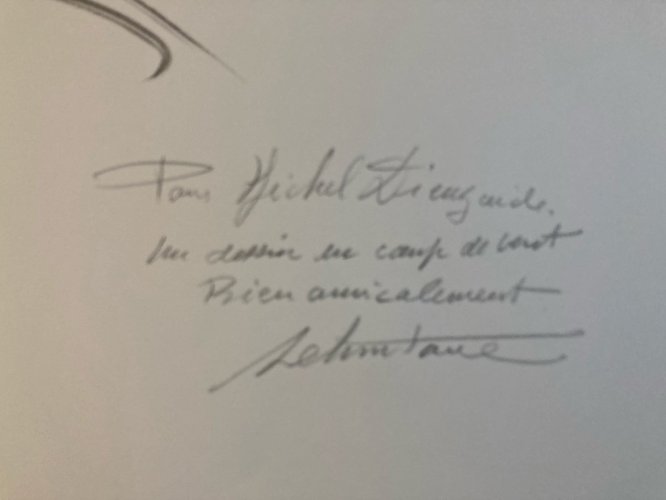 Pour Michel Dieuzaide.
Un dessin en coup de vent
Bien amicalement